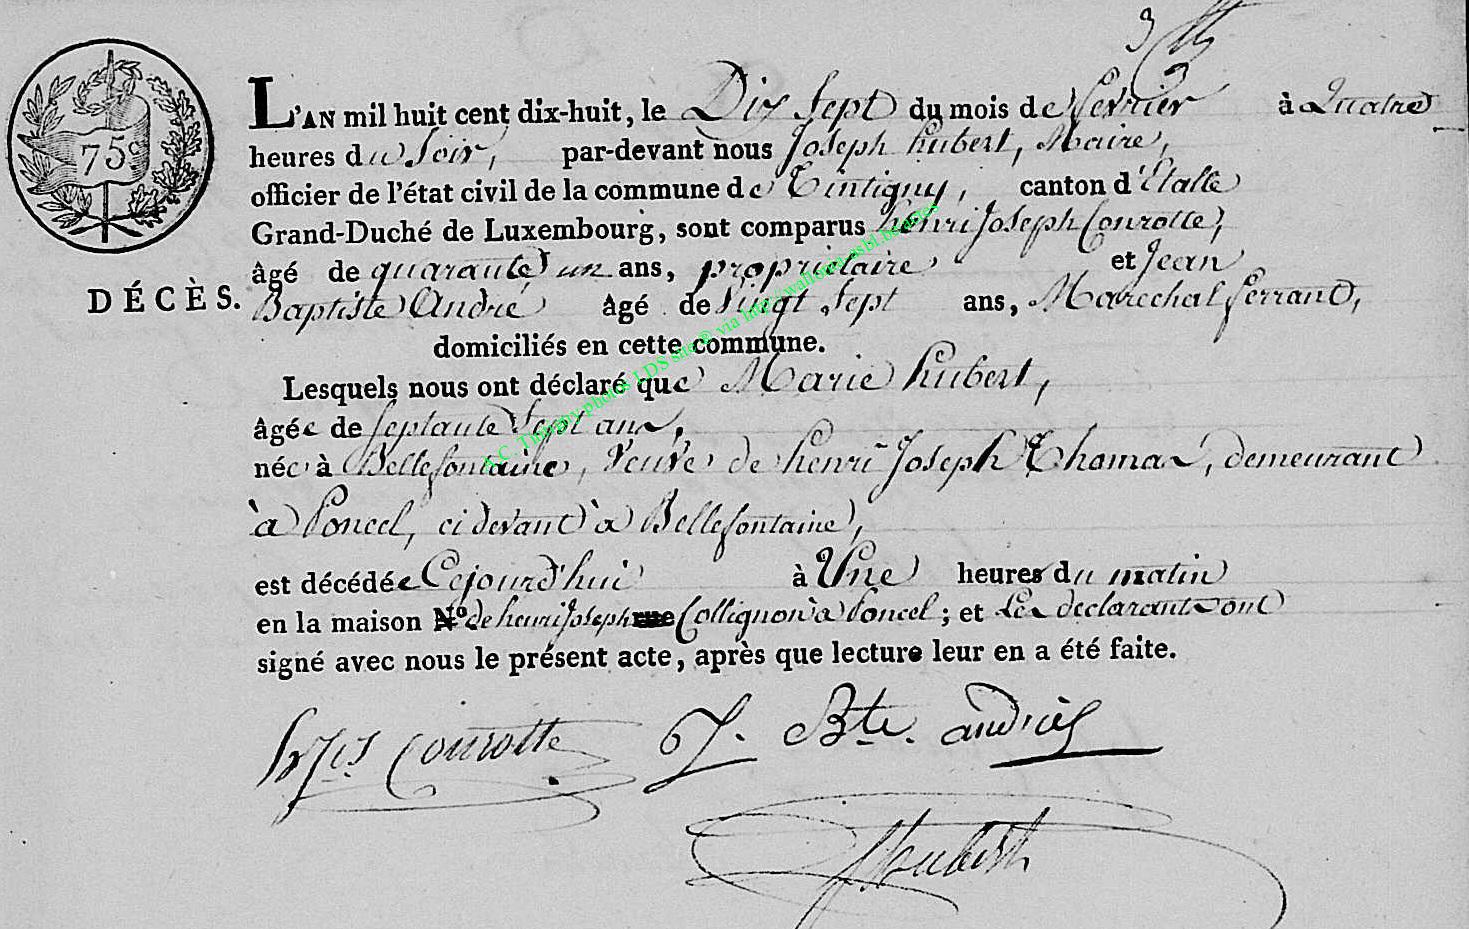 75 c
L'AN mil huit cent dix-huit, le Dix Sept du mois de fevrier à Quatre
heures du Soir, par-devant nous Joseph hubert, Maire,
officier de l'état civil de la commune de Tintigny, canton d'Etalle
Grand-Duché de Luxembourg, sont comparus henri Joseph Courotte,
âgé de quarante un ans, proprietaire et Jean
DÉCÈS. Baptiste André âgé de Vingt Sept ans, Marechal ferrant,
domiciliés en cette commune.
Lesquels nous ont déclaré que Marie hubert,
âgée de Septante Sept ans,
née à Bellefontaine, Veuve de henri Joseph Thomas, demeurant
à Poncel, ci devant à Bellefontaine,
est décédée Cejourd'hui à Une heures du matin
en la maison N.o de henri Joseph rue Collignon à Poncel; et Les declarants ont
signé avec nous le présent acte, après que lecture leur en a été faite.
Courotte J. Bte. andriès
Houbert